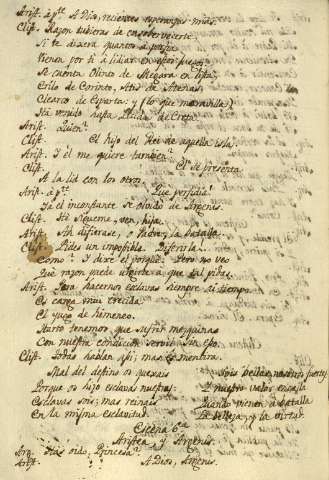 Arist. á pte. A Dios, recientes esperanzas mias.
Clist. Razon tubieras de ensobervecerte
Si te dixera quantos á porfia
vienen por ti á lidiar en estos juegos.
Se cuenta Olinto de Megara en lista,
Erilo de Corinto, Atis de Atenas,
Clearco de Esparta; y (lo que maravilla)
Ha venido hasta Licida de Creta.
Arist. Quien?
Clist. El hijo del Rei de aquella isla.
Arist. Y el me quiere tambien.
Clist. El se presenta
A la lid con los otros.
Arist. á pte. Que perfidia!
Ya el inconstante se olvidó de Argenis.
Clist. Hé sigueme, ven, hija.
Arist. Ah difierase, o Padre, la batalla.
Clist. Pides un imposible. Diferirla!
Como? Y dixe el porqué? Pero no veo
Qué razon puede unirte á que tal pidas.
Arist. Para hacernos esclavas siempre ai tiempo.
Es carga mui crecida
El yugo de himeneo.
Harto tenemos que sufrir mezquinas
Con nuestra condicion servil sin eso.
Clist. Todas hablan asi; mas es mentira.
Mal del destino os quexais
Porque os hizo esclavas nuestras:
Esclavas sois; mas reinais
En la misma esclavitud.
Sois bellas, nosotros fuertes,
Y nuestro valor encalla
Quando vienen á batalla
La belleza, y la virtud.
Escena 6a
Aristea y Argenis.
Arg. Has oido, Princesa?
Arist. A Dios, Argenis.